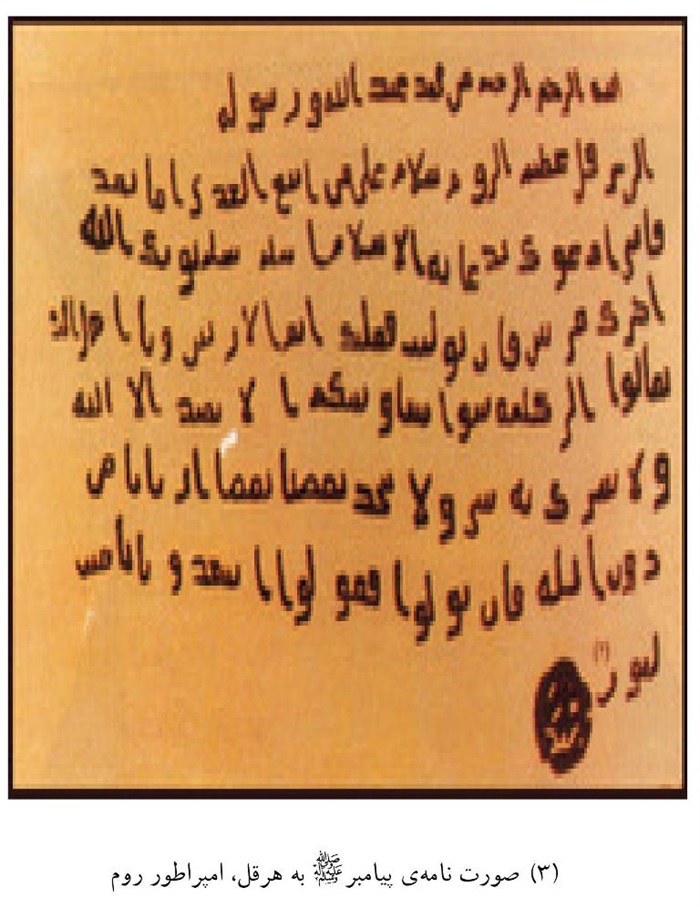 الله الرحمن الرحيم من محمد عبد الله ورسوله
الى هرقل عظيم الروم سلام على من اتبع الهدى اما بعد
فانى ادعوك بدعاية الاسلام اسلم تسلم يوتك الله
اجرك مرتين فان توليت فعليك اثم الاريسين ويا اهل
تعالوا الى كلمة سوا بيننا وبينكم الا نعبد الا الله
ولا نشرك به ولا يتخذ بعضنا بعضا اربابا من
دون الله فان تولوا فقولوا اشهدوا بانا مس
لمون
(۳) صورت نامه‌ی پیامبر ﷺ به هرقل، امپراطور روم